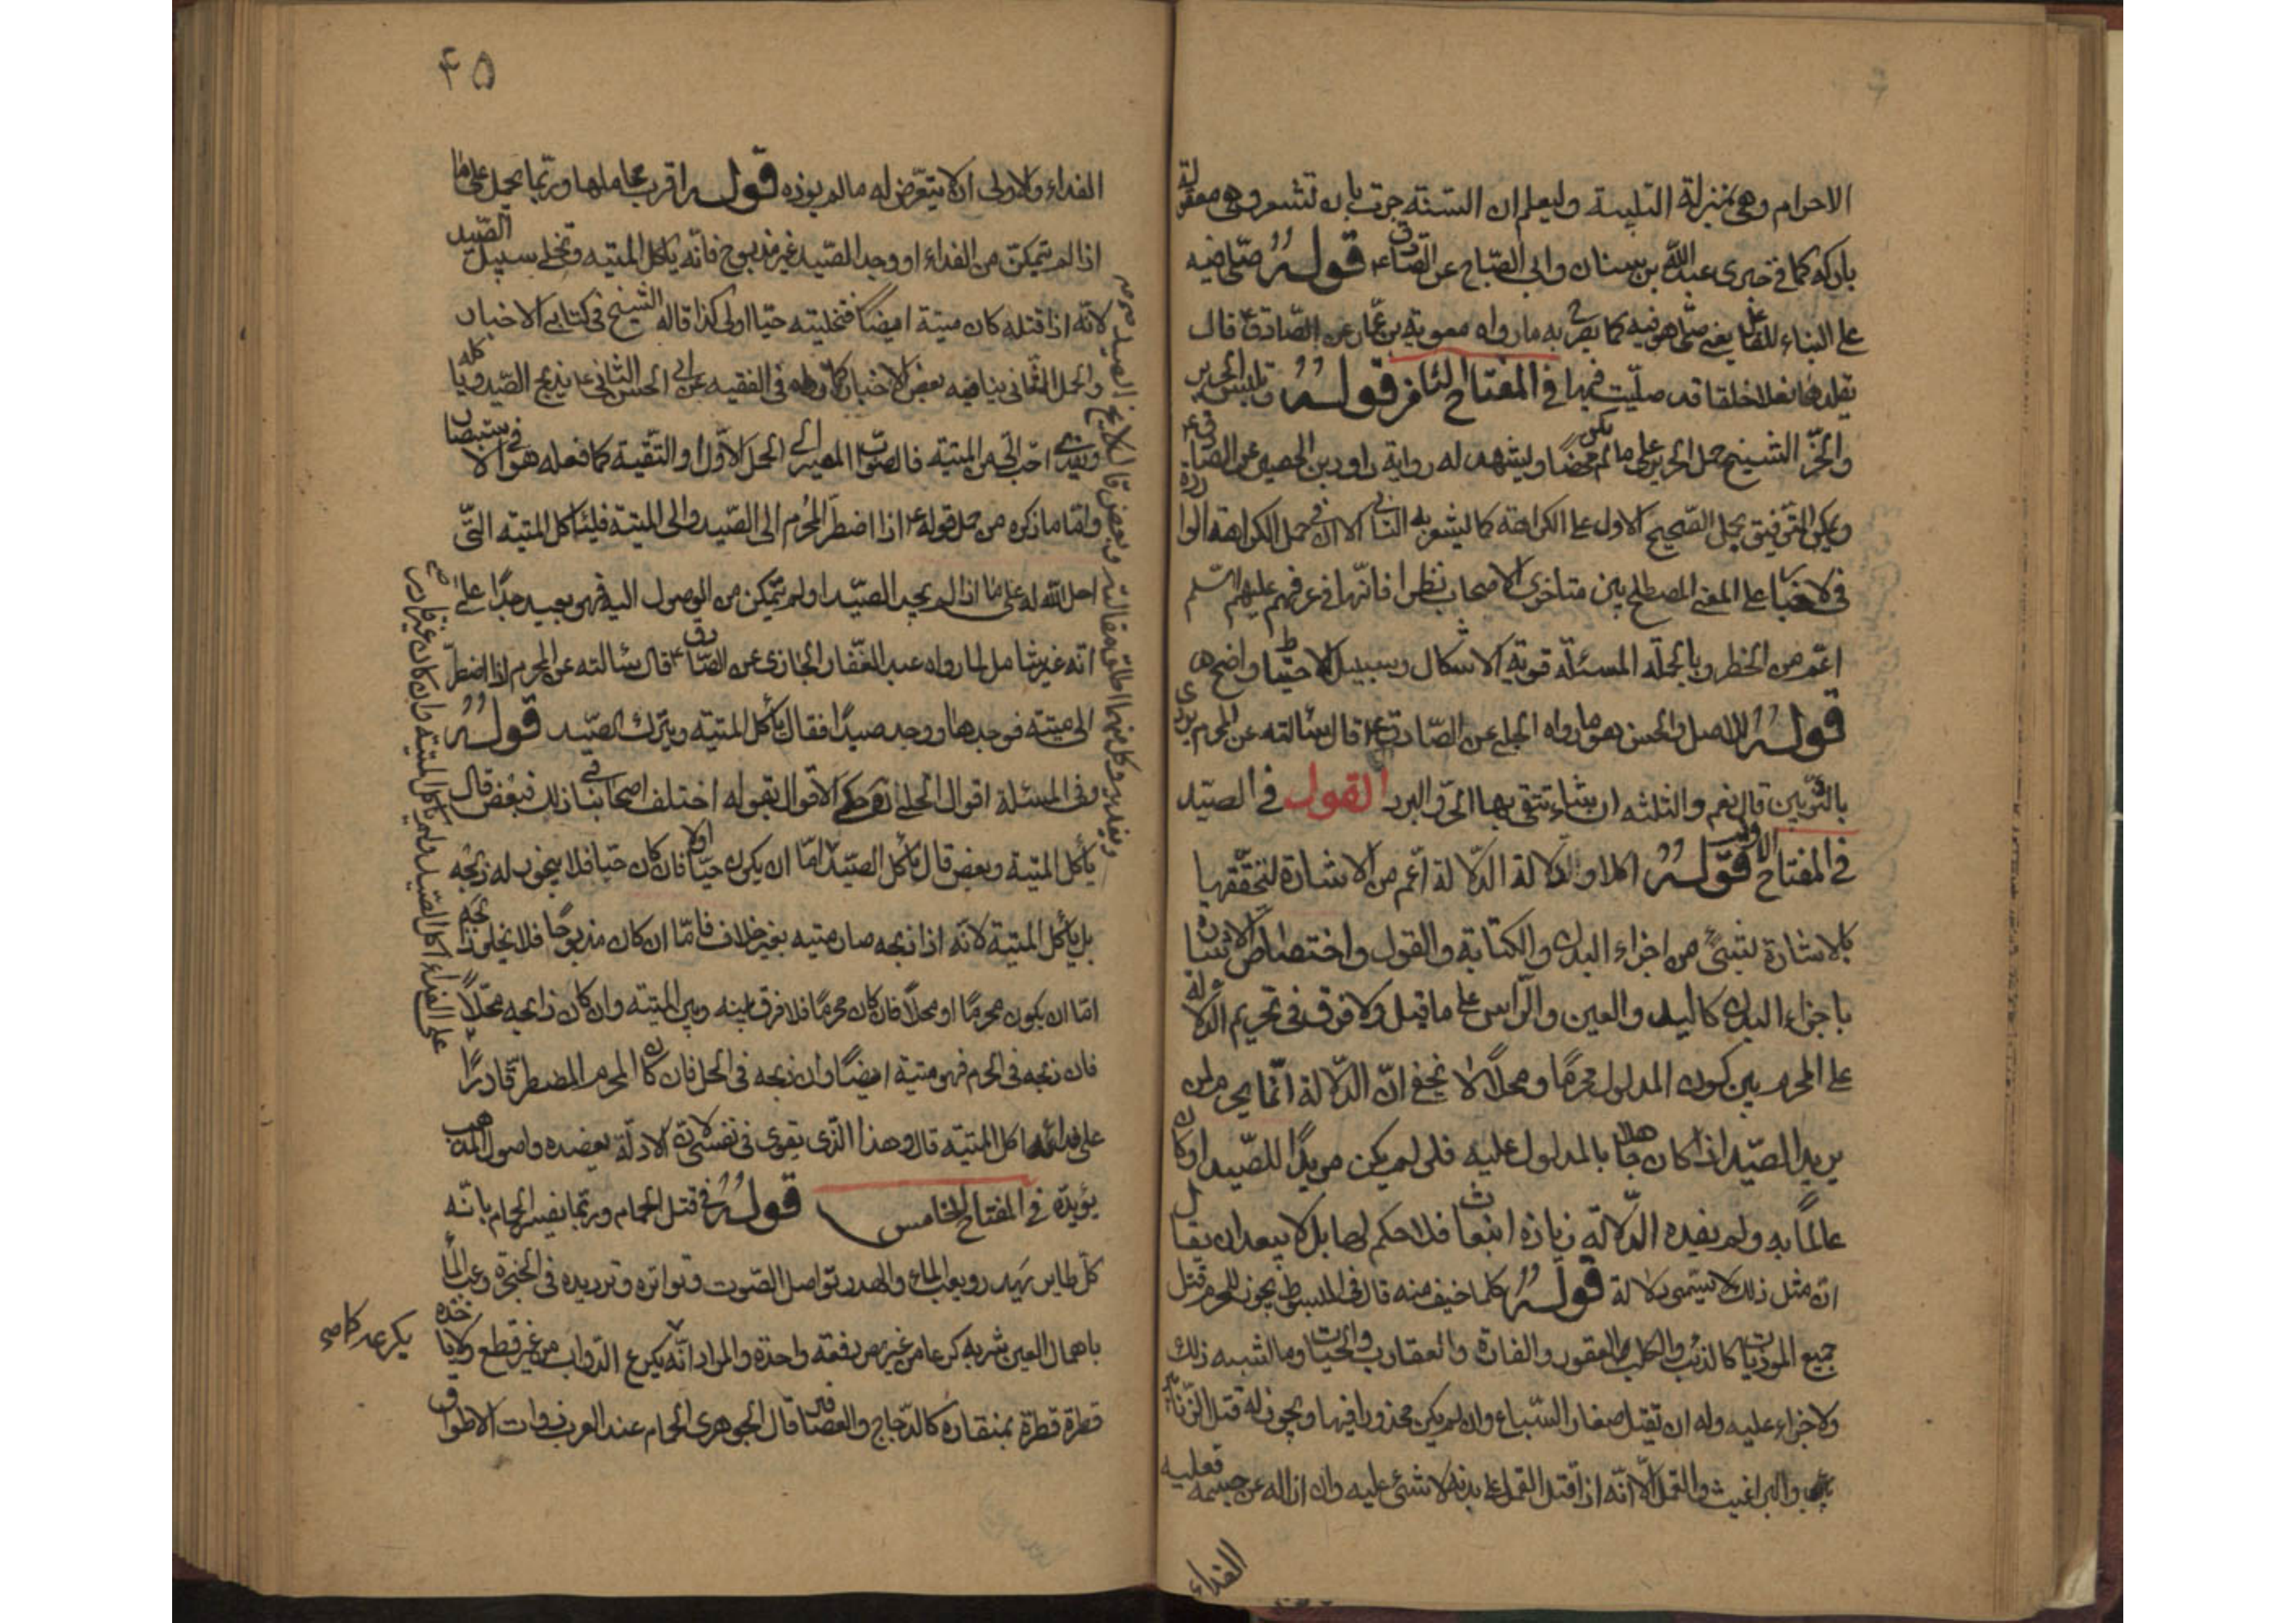 الاحرام وهی بمنزلة التلبیة ولیعلم ان السنة جرت بان تشعر وهی معقولة
بارکة کما فی خبری عبدالله بن سنان وابی الصباح عن الصادق ع قوله صلی فیه
علی البناء للفاعل یعنی صلی هو فیه کما یصرح به ما رواه معویة بن عمار عن الصادق ع قال
یقلدها نعلا خلقا قد صلیت فیها فی المفتاح قوله
والخز الشیخ حمل الحریر علی ما لم یکن محضا ویشهد له روایة داود بن الحصین عن الصادق ع
ویمکن التوفیق بحمل الصحیح الاول علی الکراهة کما یشعر به الثانی الا ان فی حمل الکراهة الواردة
فی الاخبار علی المعنی المصطلح بین متاخری الاصحاب نظرا فانها فی عرفهم علیهم السلم
اعم من الخطر وبالجملة المسئلة قویة الاشکال وسبیل الاحتیاط واضح
قوله للاصل والحسن هو ما رواه الحلبی عن الصادق ع قال سالته عن المحرم یتردی
بالثوبین قال نعم والثلثة ان شاء یتقی بها الحر والبرد القول فی الصید
فی المفتاح الاول قوله اکلا ودلالة الدلالة اعم من الاشارة لتحققها
بالاشارة لشیء من اجزاء البدن والکتابة والقول واختصاص الاشارة
باجزاء البدن کالید والعین والراس علی ما قیل ولا فرق فی تحریم الدلالة
علی المحرم بین کون المدلول محرما ومحلا ولا یخفی ان الدلالة انما یحرم لمن
یرید الصید اذا کان جاهلا بالمدلول علیه فلو لم یکن مریدا للصید او کان
عالما به ولم یفده الدلالة زیادة انبعاث فلا حکم لها بل لا یبعد ان یقال
ان مثل ذلک لا یسمی دلالة قوله کلما خیف منه قال فی المبسوط یجوز للمحرم قتل
جمیع الموذیات کالذئب والکلب العقور والفارة والعقارب والحیات وما اشبه ذلک
ولا جزاء علیه وله ان یقتل صغار السباع وان لم یکن محذورا فیها ویجوز له قتل الزنابیر
والبراغیث والقمل الا انه اذا قتل القمل علی بدنه لا شیء علیه وان ازاله عن جسمه فعلیه
الفداء
۴۵
الفداء والاولی ان لا یتعرض له ما لم یوذه قوله اقرب محاملها وربما یحمل علی ما
اذا لم یتمکن من الفداء او وجد الصید غیر مذبوح فانه یاکل المیتة ویخلی سبیل الصید
لانه اذا قتله کان میتة ایضا فتخلیته حیا اولی کذا قاله الشیخ فی کتابی الاخبار
والحمل الثانی ینافیه بعض الاخبار کما رواه فی الفقیه عن ابی الحسن الثانی ع یذبح الصید ویاکله
ویفدی احب الی من المیتة فالصواب المصیر الی الحمل الاول او التقیة کما فعله هو فی الاستبصار
واما ما ذکره من حمل قوله ع اذا اضطر المحرم الی الصید والی المیتة فلیاکل المیتة التی
احل الله له علی ما اذا لم یجد الصید او لم یتمکن من الوصول الیه فهو بعید جدا علی
انه غیر شامل لما رواه عبد الغفار الجازی عن الصادق ع قال سالته عن المحرم اذا اضطر
الی میتة فوجدها ووجد صیدا فقال یاکل المیتة ویترک الصید قوله
وفی المسئلة اقوال الحلی حکی الاقوال بقوله اختلف اصحابنا فی ذلک فبعض قال
یاکل المیتة وبعض قال یاکل الصید اما ان یکون حیا اولا فان کان حیا فلا یجوز له ذبحه
بل یاکل المیتة لانه اذا ذبحه صار میتة بغیر خلاف فاما ان کان مذبوحا فلا یخلو ذابحه
اما ان یکون محرما او محلا فان کان محرما فلا فرق بینه وبین المیتة وان کان ذابحه محلا
فان ذبحه فی الحرم فهو میتة ایضا وان ذبحه فی الحل فان کان المحرم المضطر قادرا
علی فدائه اکل المیتة قال وهذا الذی یقوی فی نفسی لان الادلة یعضده واصول المذهب
یؤیده فی المفتاح الخامس قوله فی قتل الحمام وربما یفسر الحمام بانه
کل طایر یهدر ویعب الماء والهدر تواصل الصوت وتواتره وتردیده فی الحنجرة وعب الماء
باهمال العین شربه کرعا من غیر مص دفعة واحدة والمراد انه یکرع الدواب من غیر قطع ولا یاخذه
یکرع
قطرة قطرة بمنقاره کالدجاج والعصافیر قال الجوهری الحمام عند العرب ذوات الاطواق